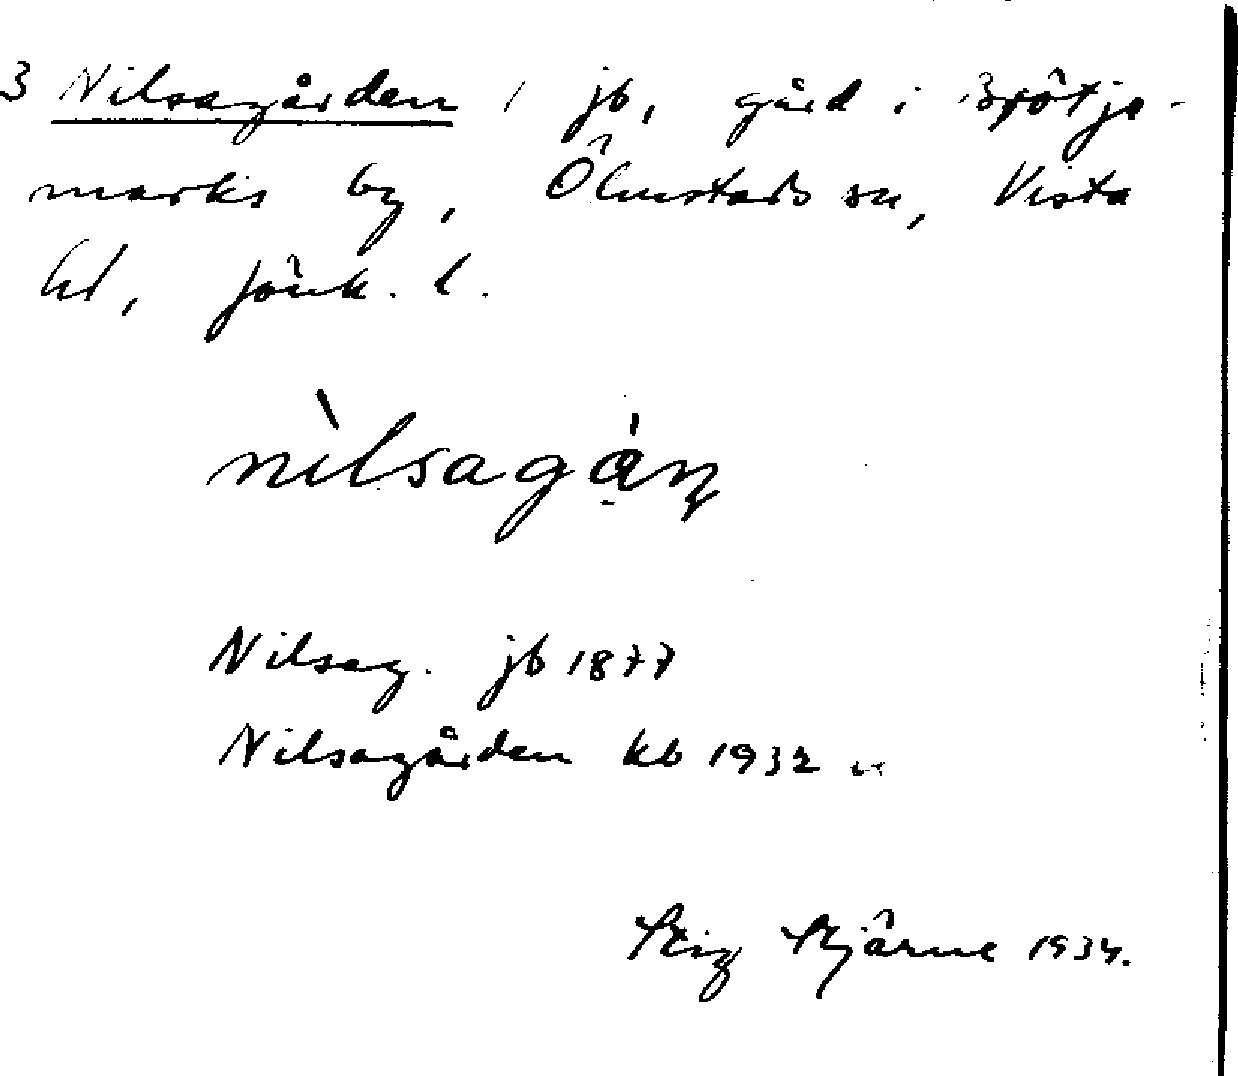 3 Nilsagården, jb, gård i Brötja-
marks by, Ölmstads sn, Vista
hd, Jönk. l.
nìlsagạ̇ṇ
Nilsag. jb 1877
Nilsagården kb 1932 n
Stig Stjärne 1934.